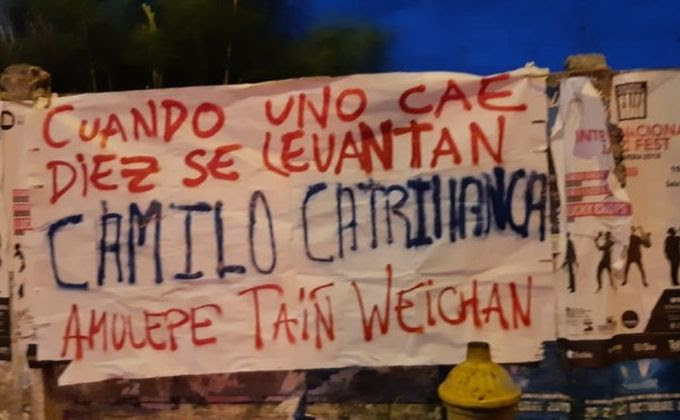 CUANDO UNO CAE
DIEZ SE LEVANTAN
CAMILO CATRIHANCA
AMULEPE TAIÑ WEICHAN
INTE
NACIONA
FEST